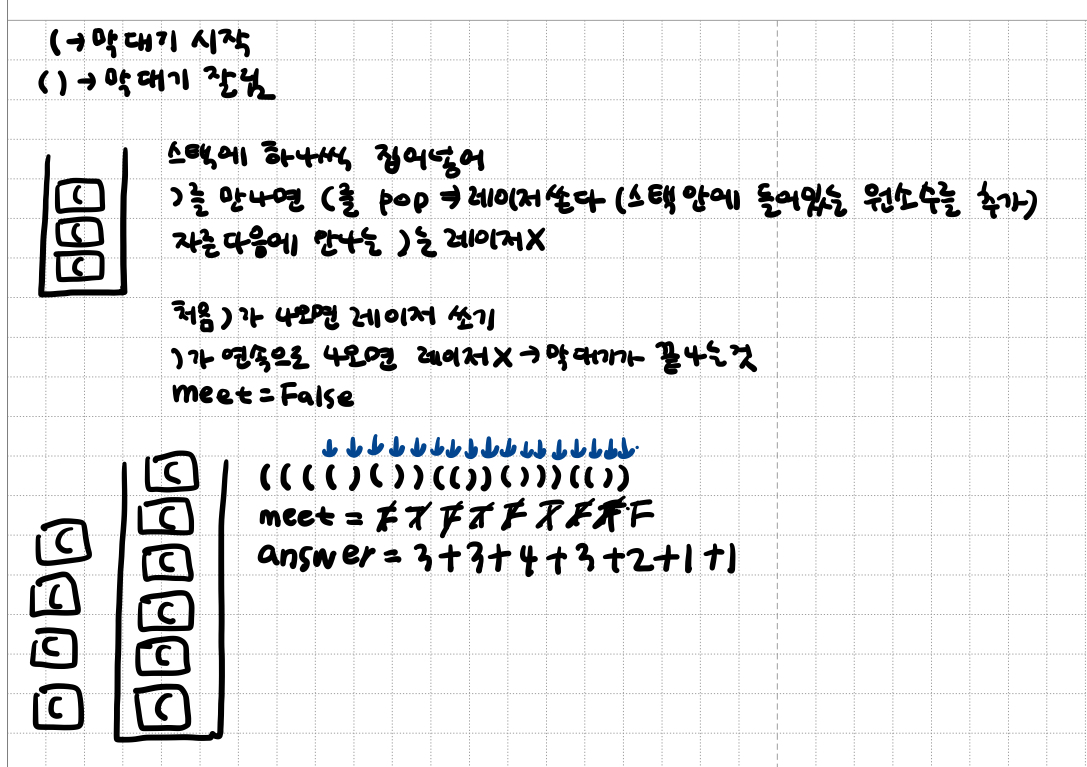 ( → 막대기 시작
( ) → 막대기 잘림
스택에 하나씩 집어넣어
)를 만나면 (를 pop ⇒ 레이저쏜다 (스택 안에 들어있는 원소수를 추가)
자른다음에 만나는 )는 레이저X
처음 )가 나오면 레이저 쏘기
)가 연속으로 나오면 레이저X → 막대기가 끝나는것
meet = False
↓ ↓ ↓ ↓ ↓ ↓ ↓ ↓ ↓ ↓ ↓ ↓ ↓ ↓ ↓ ↓
( ( ( ( ) ( ) ) ( ( ) ) ( ) ) ) ( ( ) )
meet = F T F T F T F F F
answer = 3 + 3 + 4 + 3 + 2 + 1 + 1
C
C
C
C
C
C
C
C
C
C
C
C
C